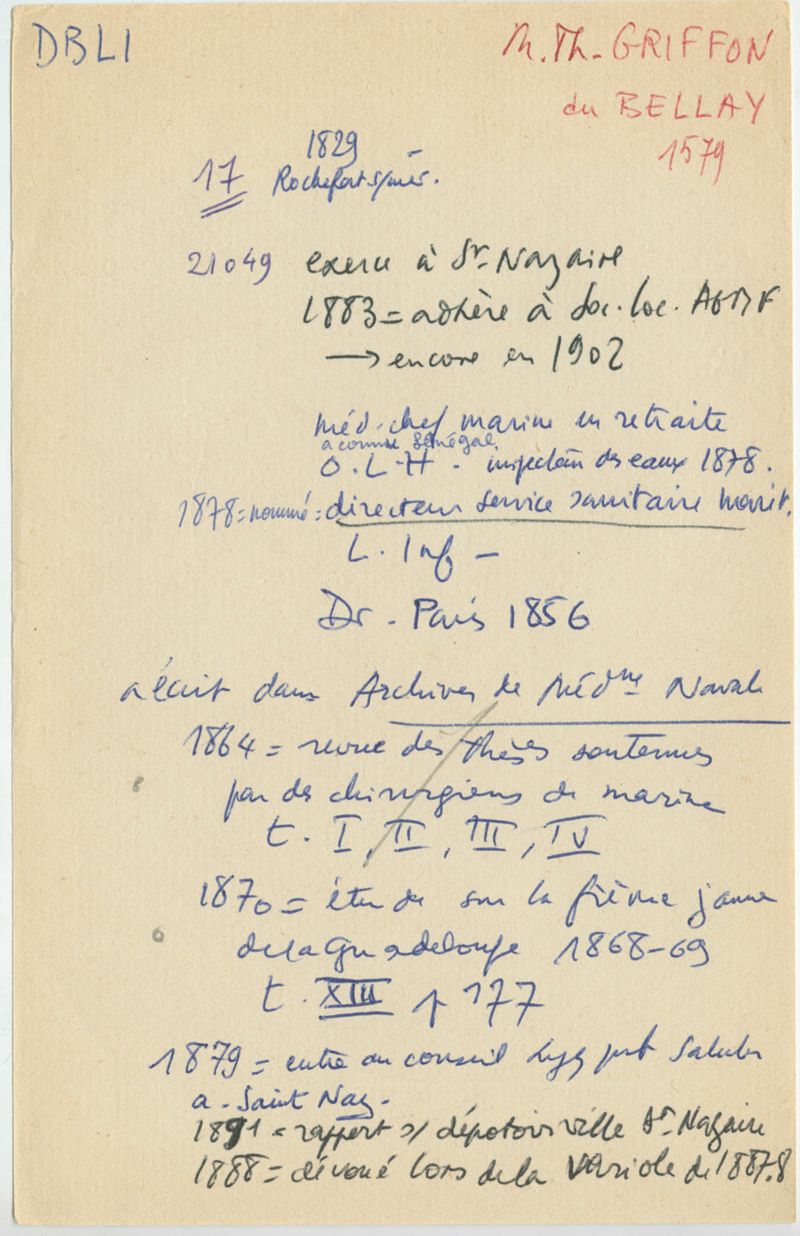 DBLI
M. Th. GRIFFON
du BELLAY
1579
1829
17 Rochefort s/mer.
21049 exerce à St-Nazaire
1883 = adhère à Soc. loc. AGMF
→ encore en 1902
méd. chef marine en retraite
a connu Sénégal
O. L. H - inspection des eaux 1878.
1878 = nommé = directeur service sanitaire marit.
L. Inf -
Dr - Paris 1856
a écrit dans Archives de Médne Navale
1864 = revue des thèses soutenues
par des chirurgiens de marine
t. I, II, III, IV
1870 = étude sur la fièvre jaune
de la Guadeloupe 1868-69
t. XIII p 177
1879 = entre au conseil hyg pub Salub
a - Saint Naz -
1891 = rapport s/ dépotoirs ville St Nazaire
1888 = dévoué lors de la variole de 1887.8